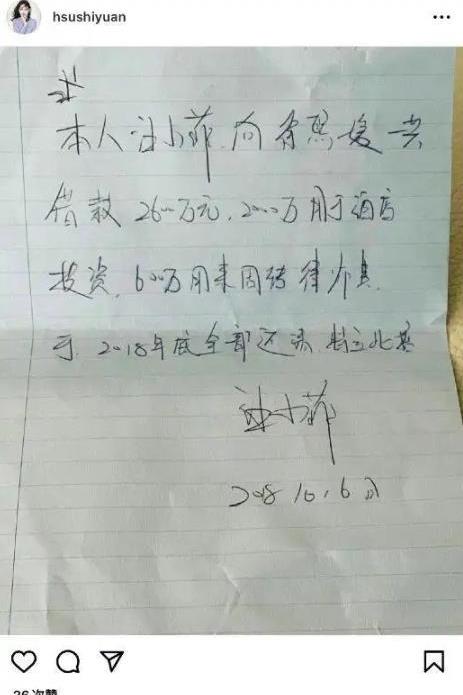 hsushiyuan
本人汪小菲,向徐熙媛共
借款2600万元,2000万用于酒店
投资,600万用来周转
于2018年底全部还清,特立此据
汪小菲
2018 10.6日